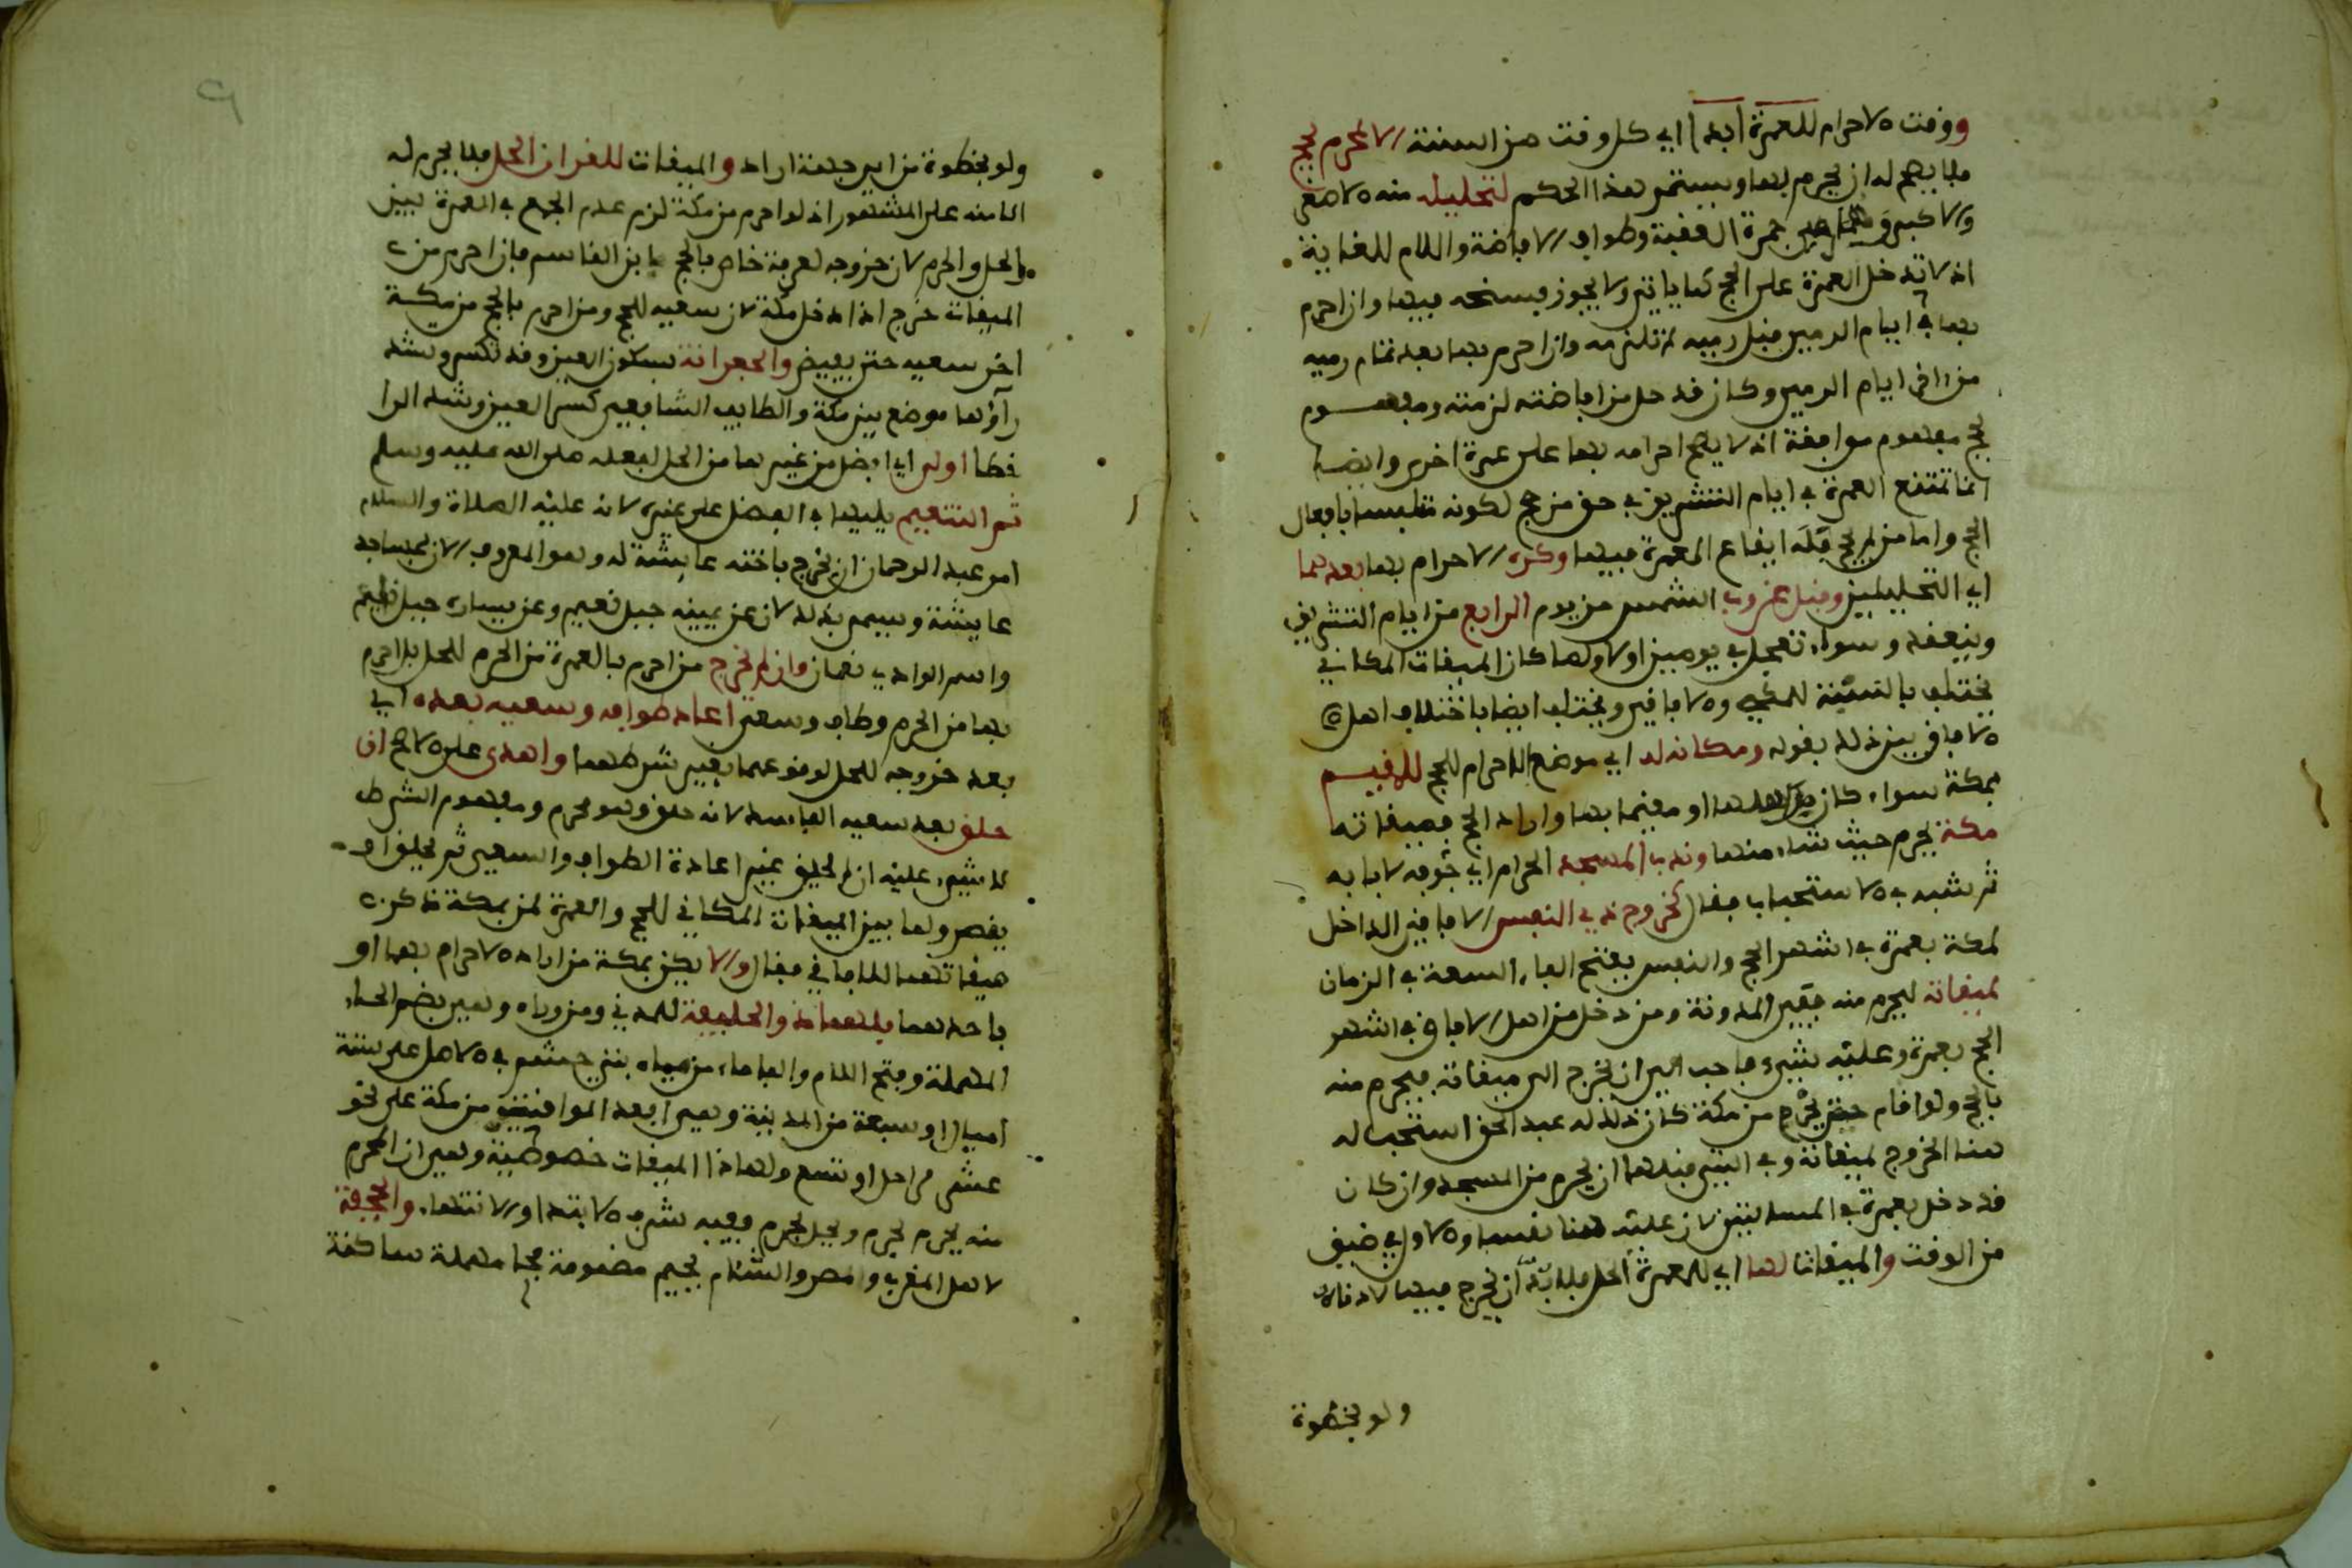 ووقت الاحرام للعمرة ابدا اي كل وقت من السنة الا لمحرم بحج
فلا يصح له ان يحرم بها ويستمر هذا الحكم لتحليليه منه الاصغر
والاكبر وهما رمي جمرة العقبة وطواف الافاضة واللام للغاية
اذ لا تدخل العمرة على الحج كما ياتي ولا يجوز فسخه فيها وان احرم
بها في ايام الرمي قبل رميه لم تلزمه وان احرم بها بعد تمام رميه
من اخر ايام الرمي وكان قد حل من افاضته لزمته ومفهوم
بحج مفهوم موافقة انه لا يصح احرامه بها على عمرة اخرى وايضا
انما تمتنع العمرة في ايام التشريق في حق من حج لكونه متلبسا بافعال
الحج واما من لم يحج فله ايقاع العمرة فيها وكره الاحرام بها بعدهما
اي التحليلين وقبل غروب الشمس من يوم الرابع من ايام التشريق
وينعقد وسواء تعجل في يومين او لا ولما كان الميقات المكاني
يختلف بالنسبة للمكي والافاقي ويختلف ايضا باختلاف اهل
الافاق بين ذلك بقوله ومكانه له اي موضع الاحرام للحج للمقيم
بمكة سواء كان من اهلها او مقيما بها واراد الحج فميقاته
مكة يحرم حيث شاء منها وندب المسجد الحرام اي جوفه لا بابه
ثم شبه في الاستحباب فقال كخروج ذي النفس الافاقي الداخل
لمكة بعمرة في اشهر الحج والنفس بفتح الفاء السعة في الزمان
لميقاته ليحرم منه ففي المدونة ومن دخل من اهل الافاق في اشهر
الحج بعمرة وعليه نفس فاحب الي ان يخرج الى ميقاته فيحرم منه
بالحج ولو اقام حتى يحرم من مكة كان ذلك له عبد الحق استحب له
هنا الخروج لميقاته وفي التي قبلها ان يحرم من المسجد وان كان
قد دخل بعمرة في المسالتين لان عليه هنا نفسا والاولى ضيق
من الوقت والميقات لها اي للعمرة الحل فلا بد ان يخرج فيها لادناه
ولو بخطوة
ولو بخطوة من اي جهة اراد والميقات للقران الحل فلا يحرم له
الا منه على المشهور اذ لو احرم من مكة لزم عدم الجمع في العمرة بين
الحل والحرم لان خروجه لعرفة خاص بالحج ابن القاسم فان احرم من
الميقات خرج اذا دخل مكة لان سعيه للحج ومن احرم بالحج من مكة
اخر سعيه حتى يفيض والجعرانة بسكون العين وقد تكسر وتشد
راؤها موضع بين مكة والطايف الشافعي كسر العين وشد الرا
خطا اولى اي افضل من غيرها من الحل لفعله صلى الله عليه وسلم
ثم التنعيم يليها في الفضل على غيره لانه عليه الصلاة والسلام
امر عبد الرحمان ان يخرج باخته عايشة له وهو المعروف الان بمساجد
عايشة وسمي بذلك لان عن يمينه جبل نعيم وعن يساره جبل ناعم
واسم الوادي نعمان وان لم يخرج من احرم بالعمرة من الحرم للحل بل احرم
بها من الحرم وطاف وسعى اعاد طوافه وسعيه بعده اي
بعد خروجه للحل لوقوعهما بغير شرطهما واهدى على الاصح ان
حلق بعد سعيه الفاسد لانه حلق وهو محرم ومفهوم الشرط
لا شيء عليه ان لم يحلق غير اعادة الطواف والسعي ثم يحلق او
يقصر ولما بين الميقات المكاني للحج والعمرة لمن بمكة ذكر
ميقاتهما للافاقي فقال والا يكن بمكة من اراد الاحرام بها او
باحدهما فلهما ذو الحليفة للمدني ومن وراه وهي بضم الحاء
المهملة وفتح اللام والفاء ماء من مياه بني جشم في الاصل على ستة
اميال او سبعة من المدينة وهي ابعد المواقيت من مكة على نحو
عشر مراحل او تسع ولهذا الميقات خصوصية وهي ان المحرم
منه يحرم لحرم ويحل بحرم ففيه شرف الابتدا والانتهاء والجحفة
لاهل المغرب والمصر والشام بجيم مضمومة فحا مهملة ساكنة